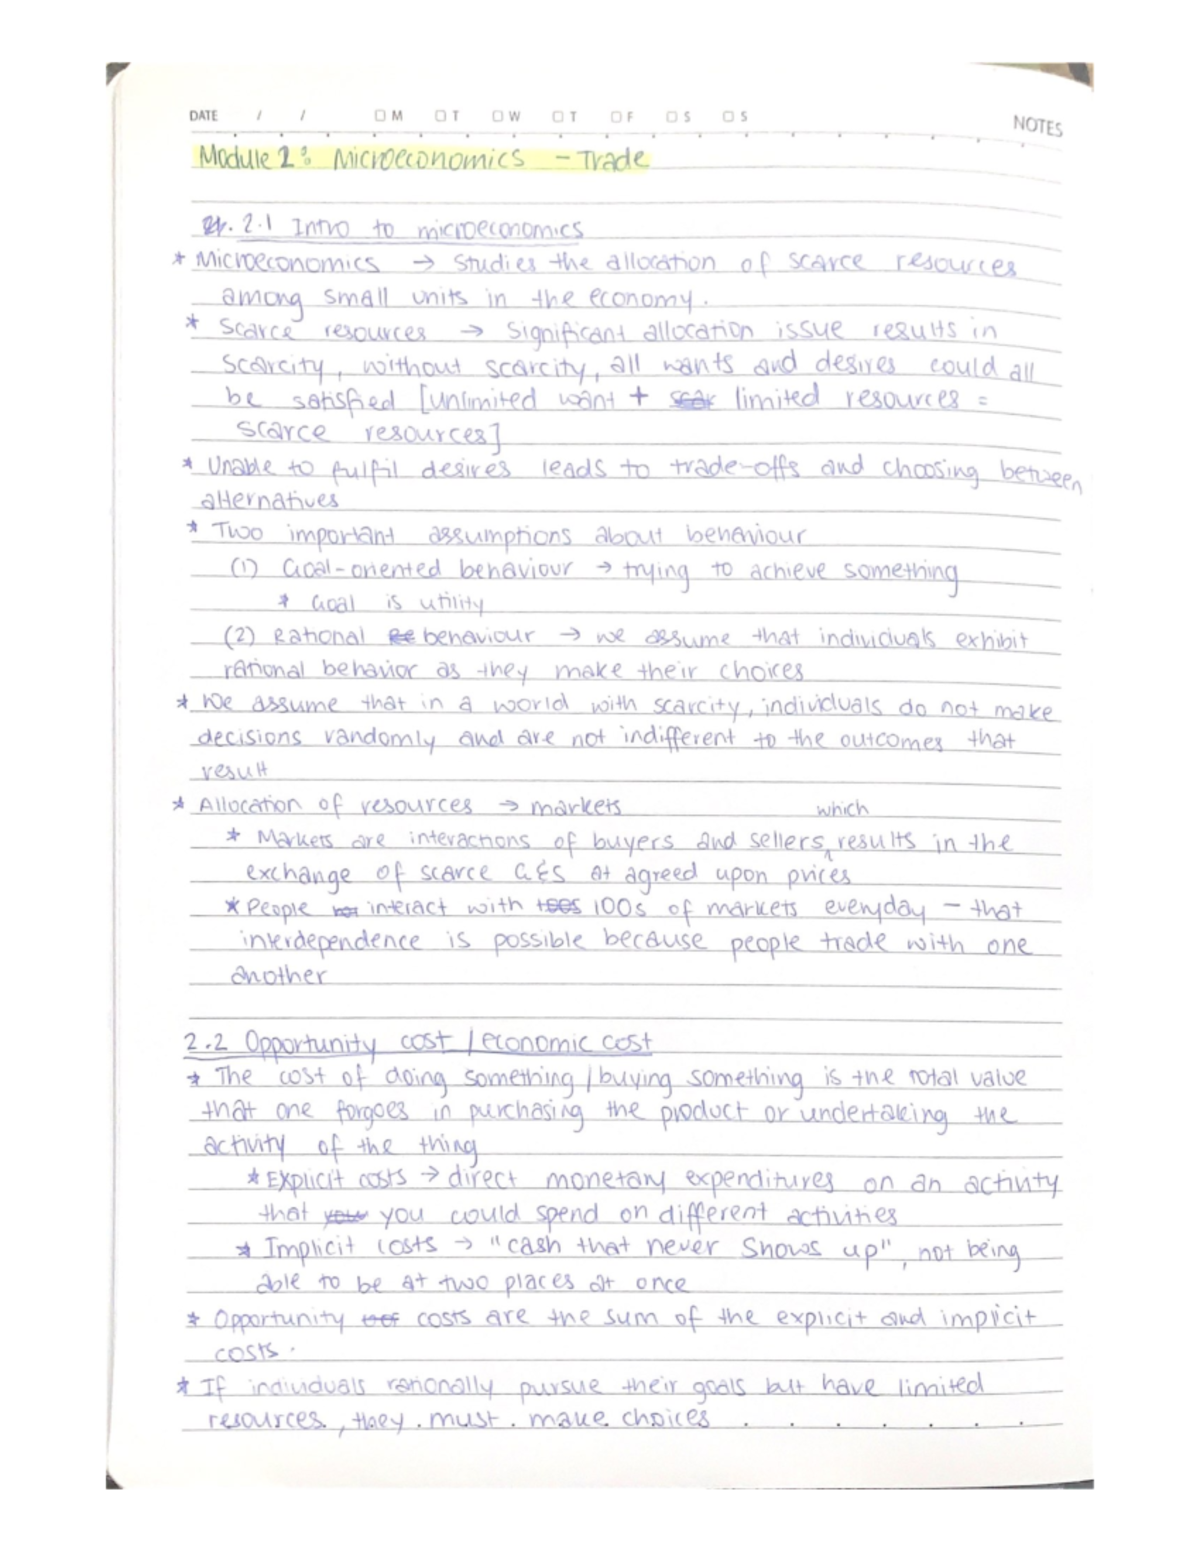 DATE / / ☐ M ☐ T ☐ W ☐ T ☐ F ☐ S ☐ S NOTES
Module 2: Microeconomics - Trade
2.1 Intro to microeconomics
* Microeconomics → studies the allocation of scarce resources
among small units in the economy.
* Scarce resources → Significant allocation issue results in
scarcity, without scarcity, all wants and desires could all
be satisfied [unlimited want + limited resources =
scarce resources]
* Unable to fulfil desires leads to trade-offs and choosing between
alternatives
* Two important assumptions about behaviour
(1) Goal-oriented behaviour → trying to achieve something
* Goal is utility
(2) Rational behaviour → we assume that individuals exhibit
rational behavior as they make their choices
* We assume that in a world with scarcity, individuals do not make
decisions randomly and are not indifferent to the outcomes that
result
* Allocation of resources → markets
* Markets are interactions of buyers and sellers, which results in the
exchange of scarce G&S at agreed upon prices
* People interact with 100s of markets everyday - that
interdependence is possible because people trade with one
another
2.2 Opportunity cost / economic cost
* The cost of doing something / buying something is the total value
that one forgoes in purchasing the product or undertaking the
activity of the thing
* Explicit costs → direct monetary expenditures on an activity
that you could spend on different activities
* Implicit costs → "cash that never shows up", not being
able to be at two places at once
* Opportunity costs are the sum of the explicit and implicit
costs.
* If individuals rationally pursue their goals but have limited
resources, they must make choices